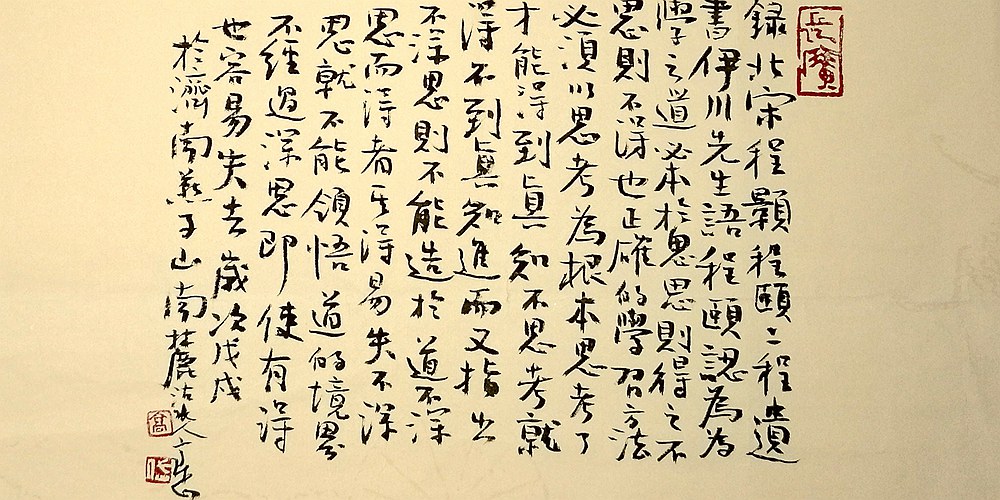 録北宋程顥程頤二程遺
書伊川先生語程頤認為為
學之道必本於思思則得之不
思則不得也正確的學習方法
必須以思考為根本思考了
才能得到真知不思考就
得不到真知進而又指出
不深思則不能造於道不深
思而得者其得易失不深
思就不能領悟道的境界
不經過深思即使有得
也容易失去歲次戊戌
於濟南燕子山南麓